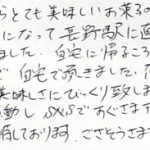 らとても美味しいお菓子の
になって長野駅に直
ました。自宅に帰るころ
で自宅で頂きました。
美味しさにびっくり致しま
動しSNSであげさます
有しております。ごちそうさまで